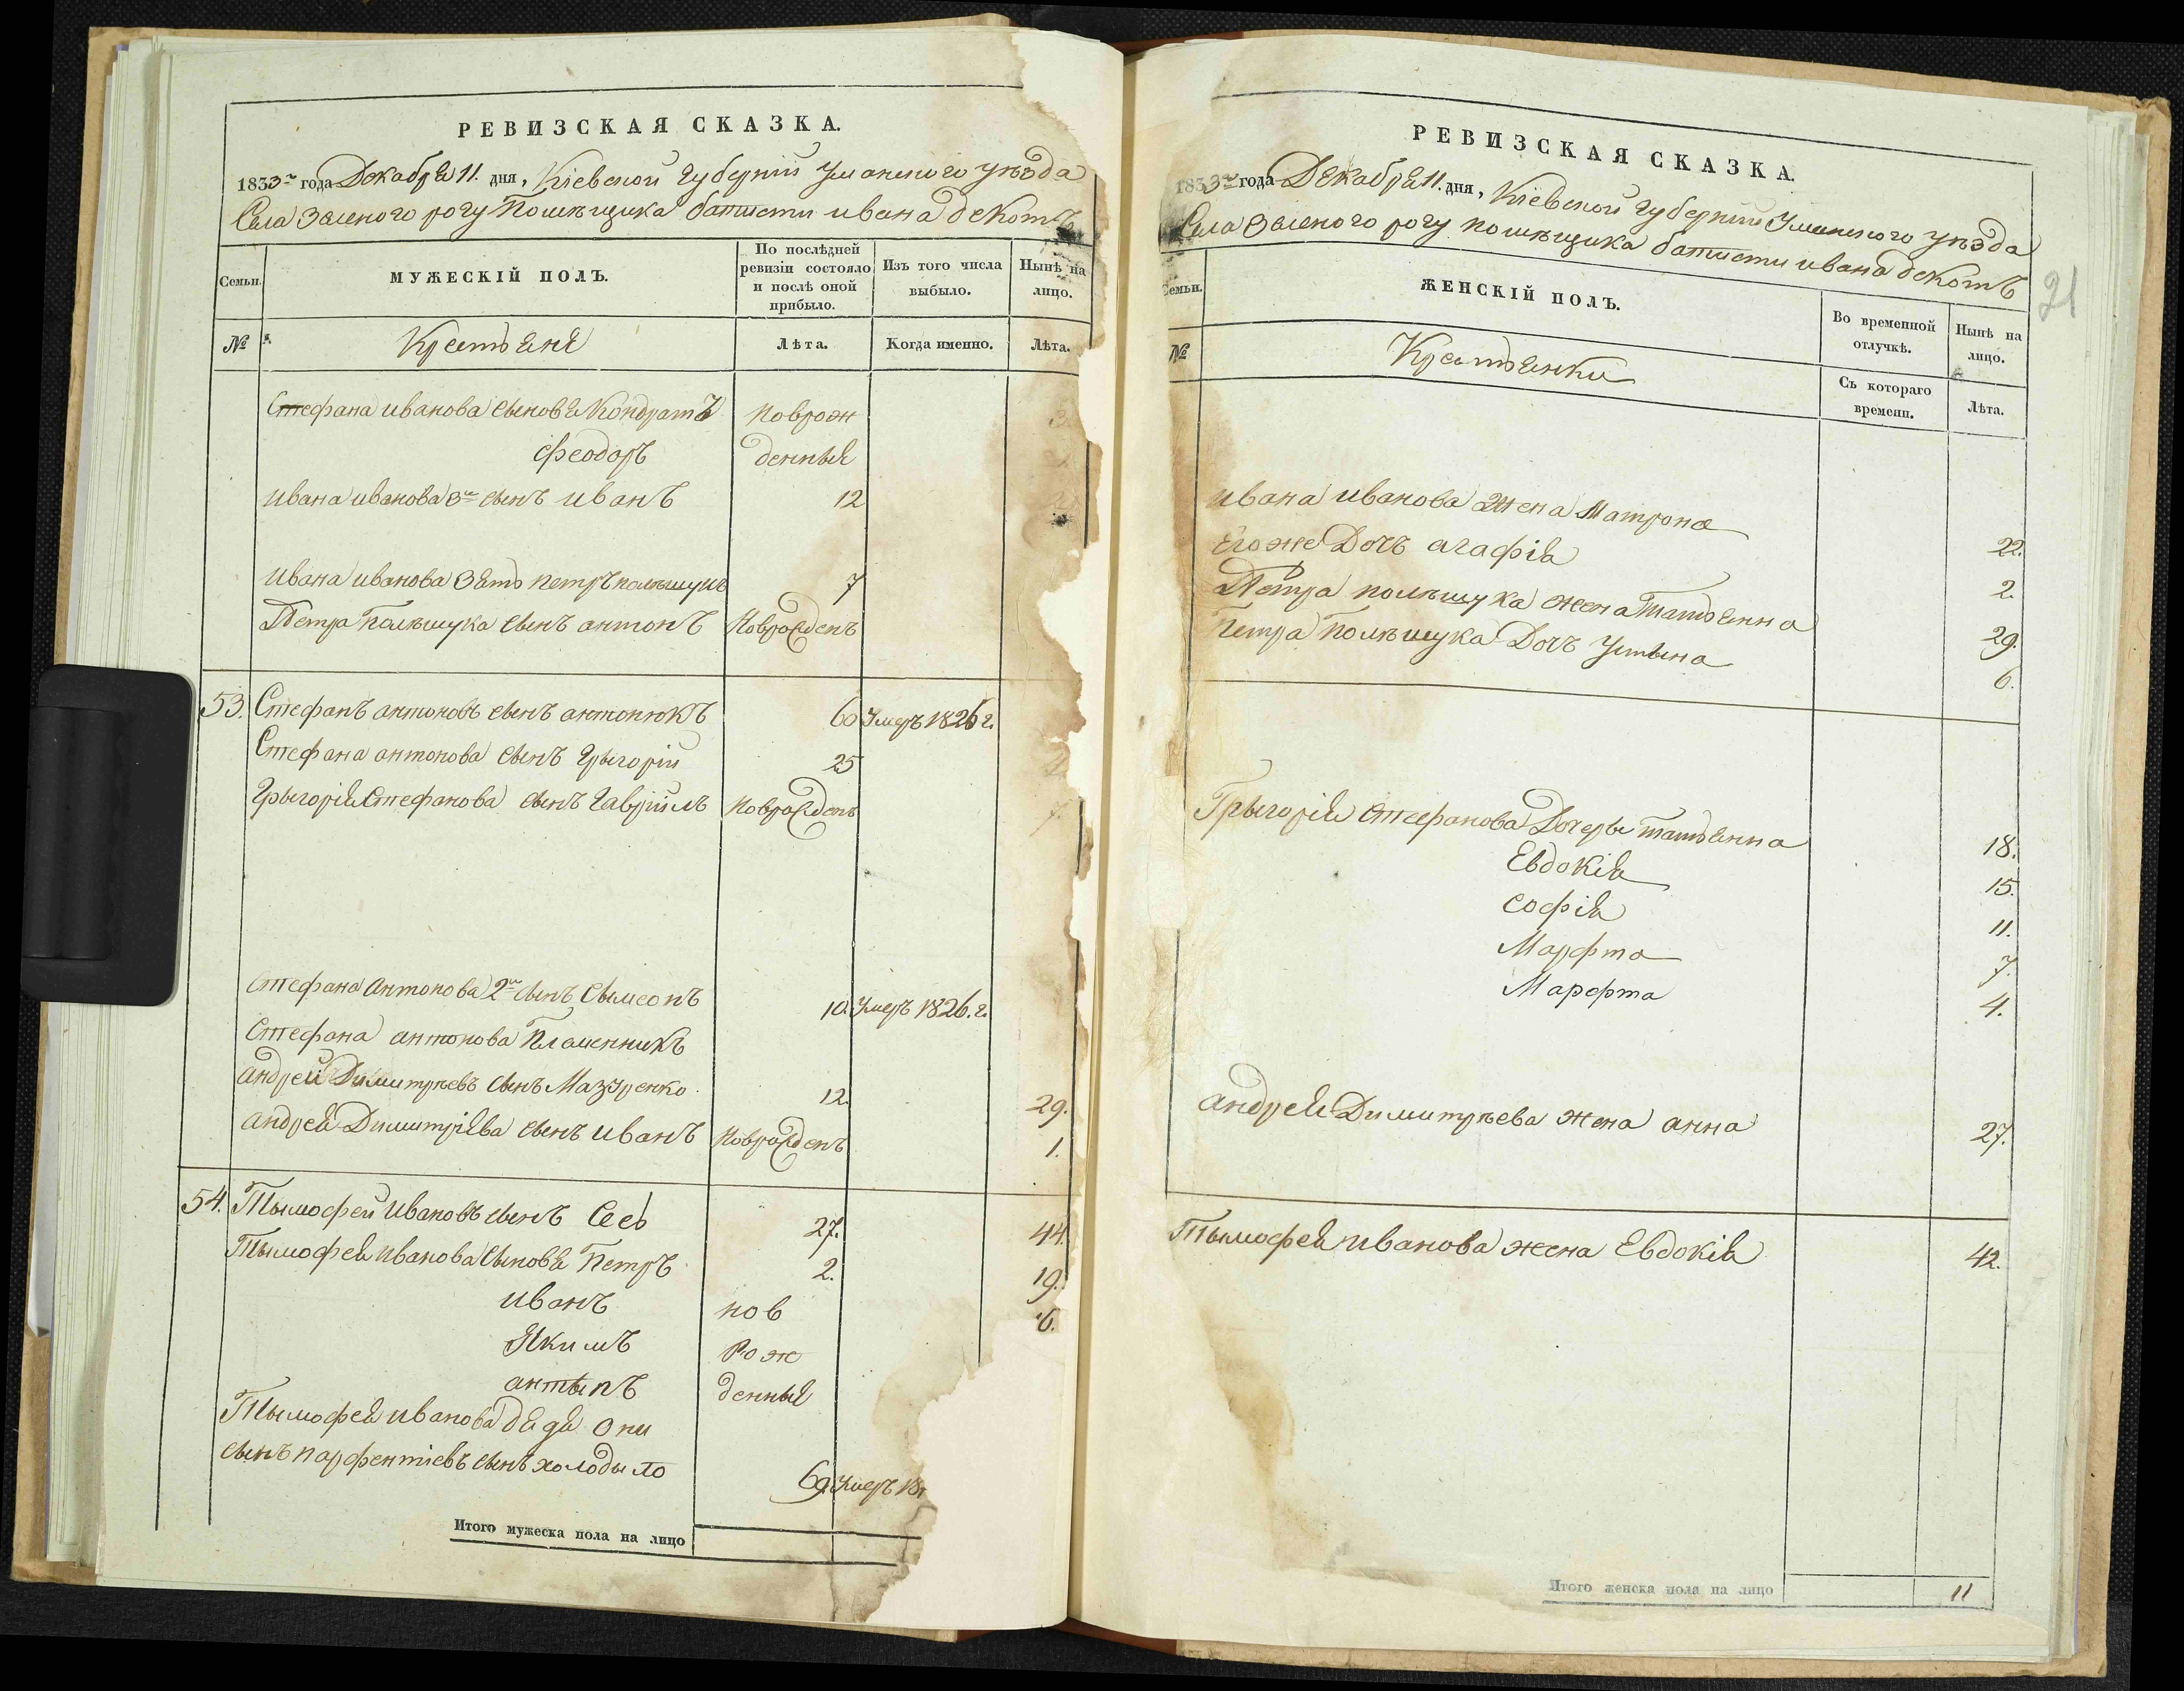 РЕВИЗСКАЯ СКАЗКА.
1833го года Декабря 11. дня, Кіевской Губерніи Уманского уѣзда
Села Зеленого рогу Помѣщика батисти ивана декотъ
Семьи.
МУЖЕСКІЙ ПОЛЪ.
По послѣдней ревизіи состояло и послѣ оной прибыло.
Изъ того числа выбыло.
Нынѣ на лицо.
№
Крестьяне
Лѣта.
Когда именно.
Лѣта.
Стефана иванова сыновя Кондратъ новрож
феодоръ денныя
ивана иванова 3й сынъ иванъ 12
ивана иванова зять петръ полѣщукъ 7
Петра Полѣщука сынъ антонъ новрожденъ
53. Стефанъ антоновъ сынъ антонюкъ 60 Умеръ 1826 г.
Стефана антонова сынъ Грыгорій 25
Грыгорія Стефанова сынъ Гавріилъ новрожденъ 7.
Стефана Антонова 2й сынъ Сымеонъ 10. Умеръ 1826. г.
Стефана антонова Племенникъ
андрей Димитрѣевъ сынъ Мазуренко 12. 29.
андрея Димитріева сынъ иванъ новрожденъ 1.
54. Тымофей ивановъ сынъ Сесь 27. 44.
Тымофея иванова сыновя Петръ 2. 19.
иванъ нов 6.
Якимъ рож
антыпъ денныя
Тымофея иванова дядя они
сынъ парфентіевъ сынъ холодыло 69. Умеръ 18
Итого мужеска пола на лицо
РЕВИЗСКАЯ СКАЗКА.
1833го года Декабря 11. дня, Кіевской Губерніи Уманского уѣзда
Села Зеленого рогу помѣщика батисти ивана декотъ
21
Семьи.
ЖЕНСКІЙ ПОЛЪ.
Во временной отлучкѣ.
Нынѣ на лицо.
№
Крестьянки
Съ котораго времени.
Лѣта.
ивана иванова жена Матрона 22.
Егоже Дочь агафія 2.
Петра полѣщука жена Татьянна 29.
Петра Полѣщука Дочь Устына 6.
Грыгорія стефанова Дочеры татьянна 18.
Евдокія 15.
софія 11.
Марфта 7.
Марфта 4.
андрея Димитрѣева жена анна 27.
Тымофея иванова жена Евдокія 42.
Итого женска пола на лицо 11